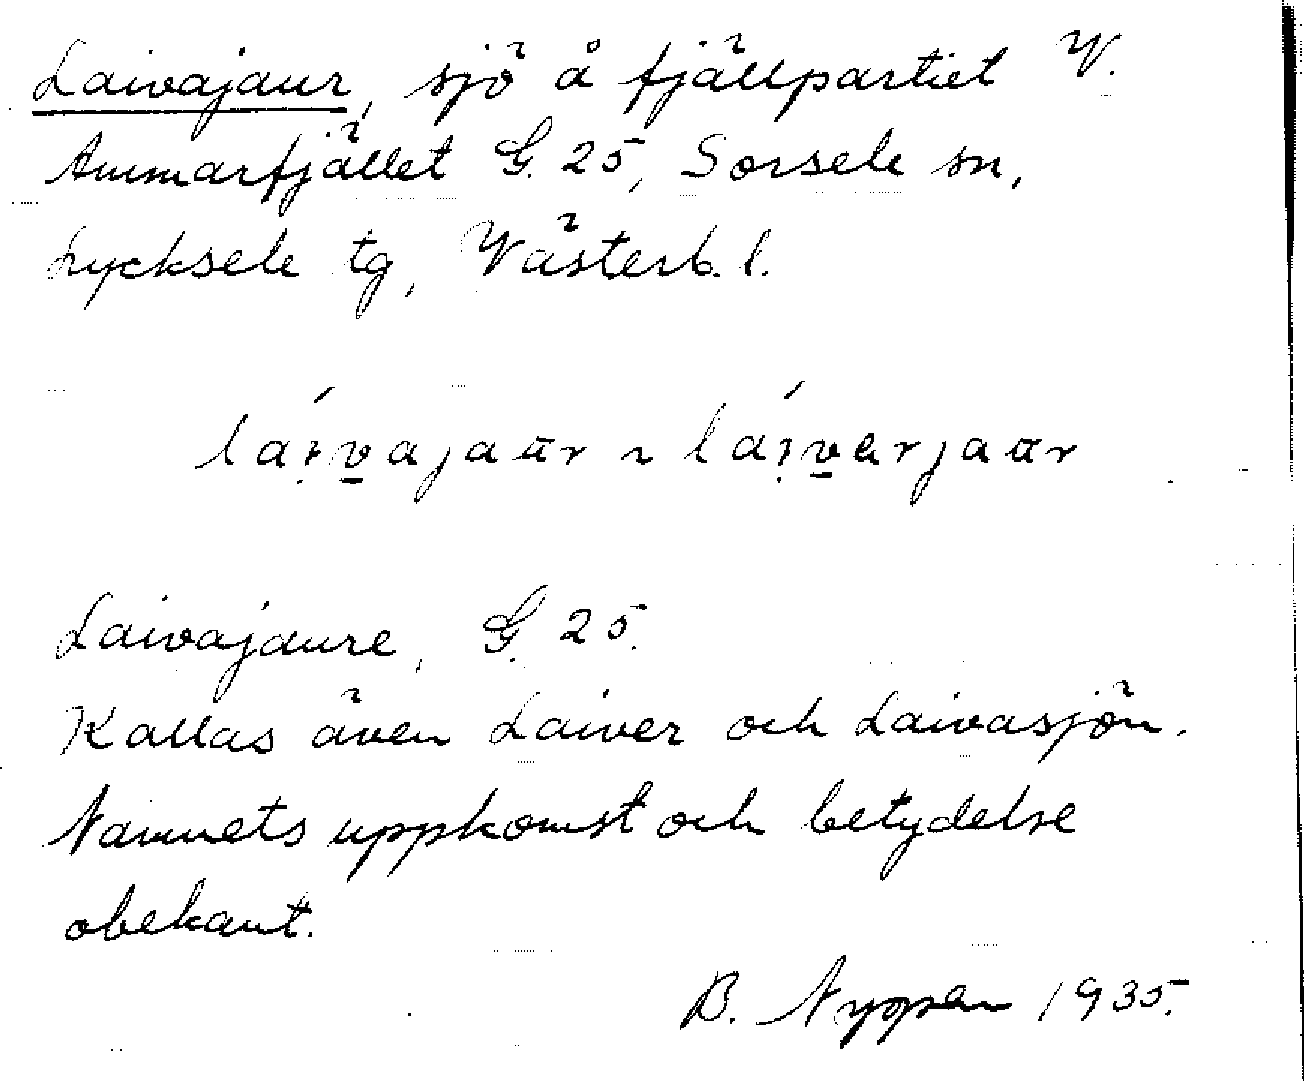 Laivajaur, sjö å fjällpartiet V.
Ammarfjället G. 25, Sorsele sn,
Lycksele tg, Västerb. l.
láivajaur ~ láiverjaur
Laivajaure, G. 25.
Kallas även Laiver och Laivasjön.
Namnets uppkomst och betydelse
obekant.
B. 1935.